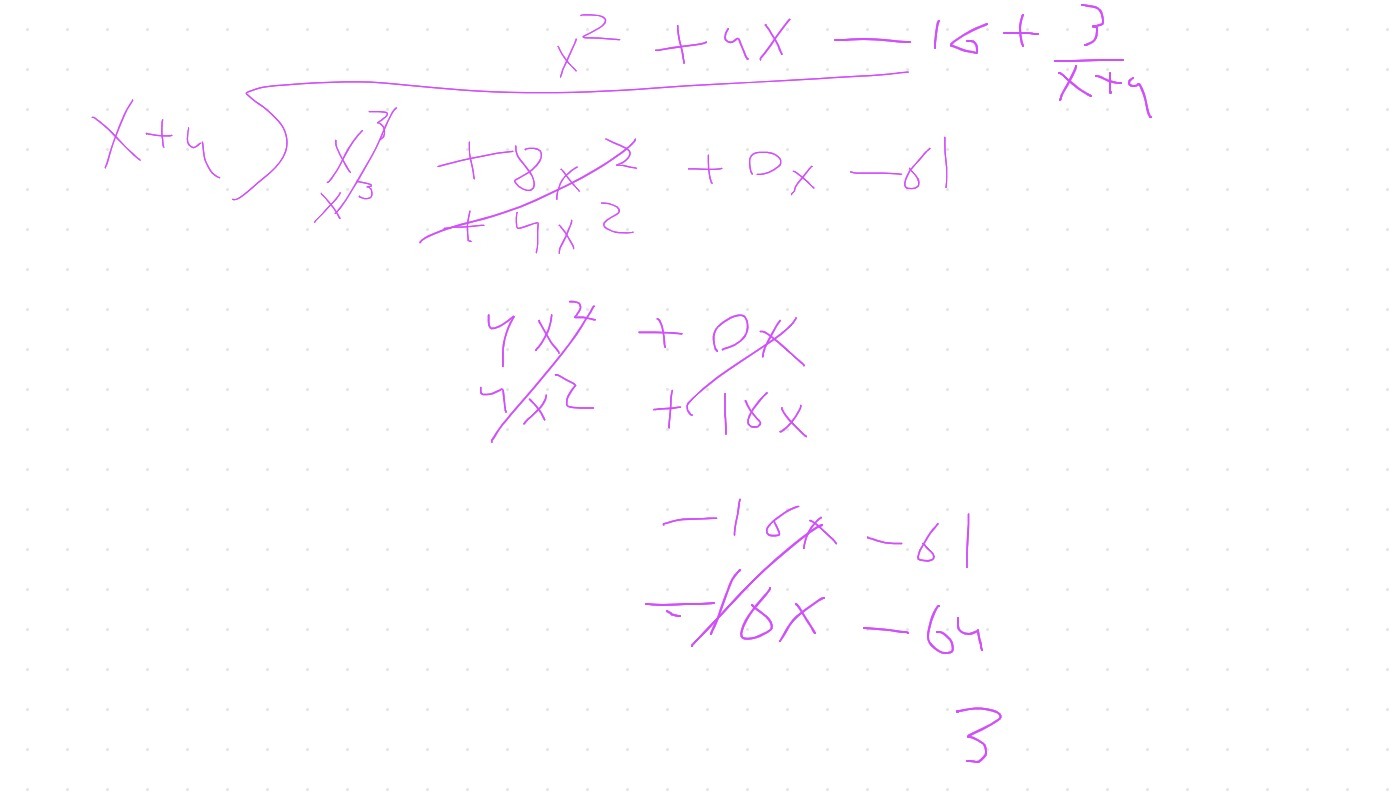 x² + 4x — 16 + 3/(x+4)
x+4 ) x³ + 8x² + 0x — 61
x³ + 4x²
4x² + 0x
4x² + 16x
— 16x — 61
— 16x — 64
3